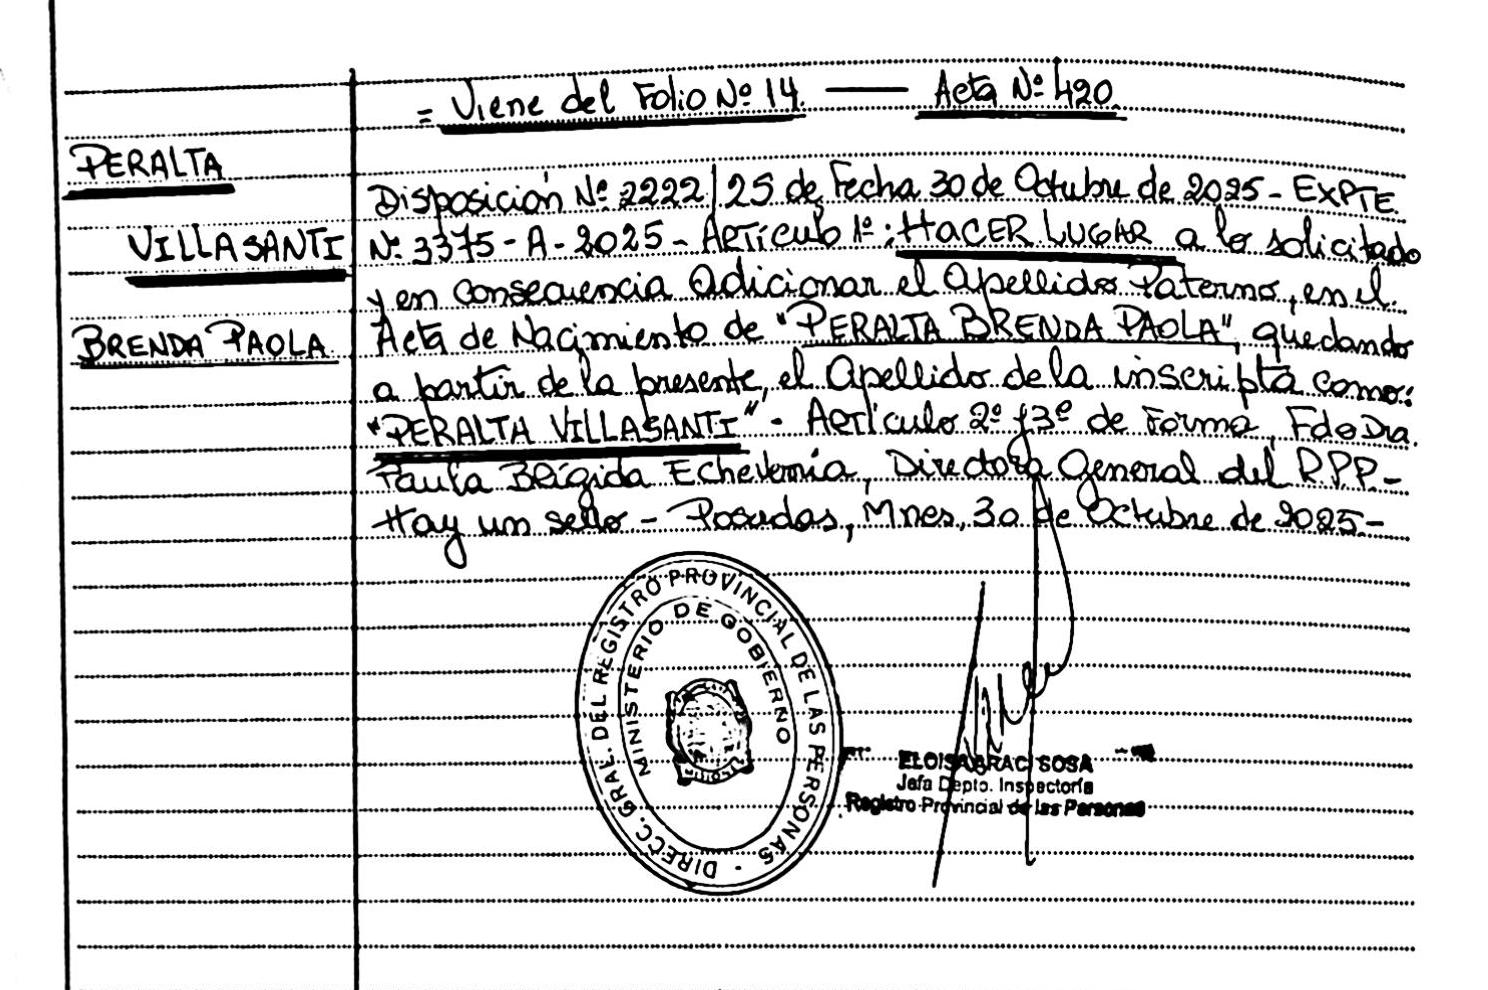 = Viene del Folio Nº 14. — Acta Nº 420.
PERALTA
VILLASANTI
BRENDA PAOLA
Disposición Nº 2222/25 de Fecha 30 de Octubre de 2025 - EXPTE.
Nº 3375 - A - 2025 - ARTÍCULO 1º: HACER LUGAR a lo solicitado
y en consecuencia Adicionar el Apellido Paterno, en el
Acta de Nacimiento de "PERALTA BRENDA PAOLA", quedando
a partir de la presente, el Apellido de la inscripta como:
"PERALTA VILLASANTI" - Artículo 2º y 3º de Forma, Fdo Dra.
Paula Brígida Echeverría, Directora General del R.P.P. -
Hay un sello - Posadas, Mnes, 30 de Octubre de 2025 -
DIRECC. GRAL. DEL REGISTRO PROVINCIAL DE LAS PERSONAS -
MINISTERIO DE GOBIERNO
ELOISA ARACI SOSA
Jefa Depto. Inspectoría
Registro Provincial de las Personas